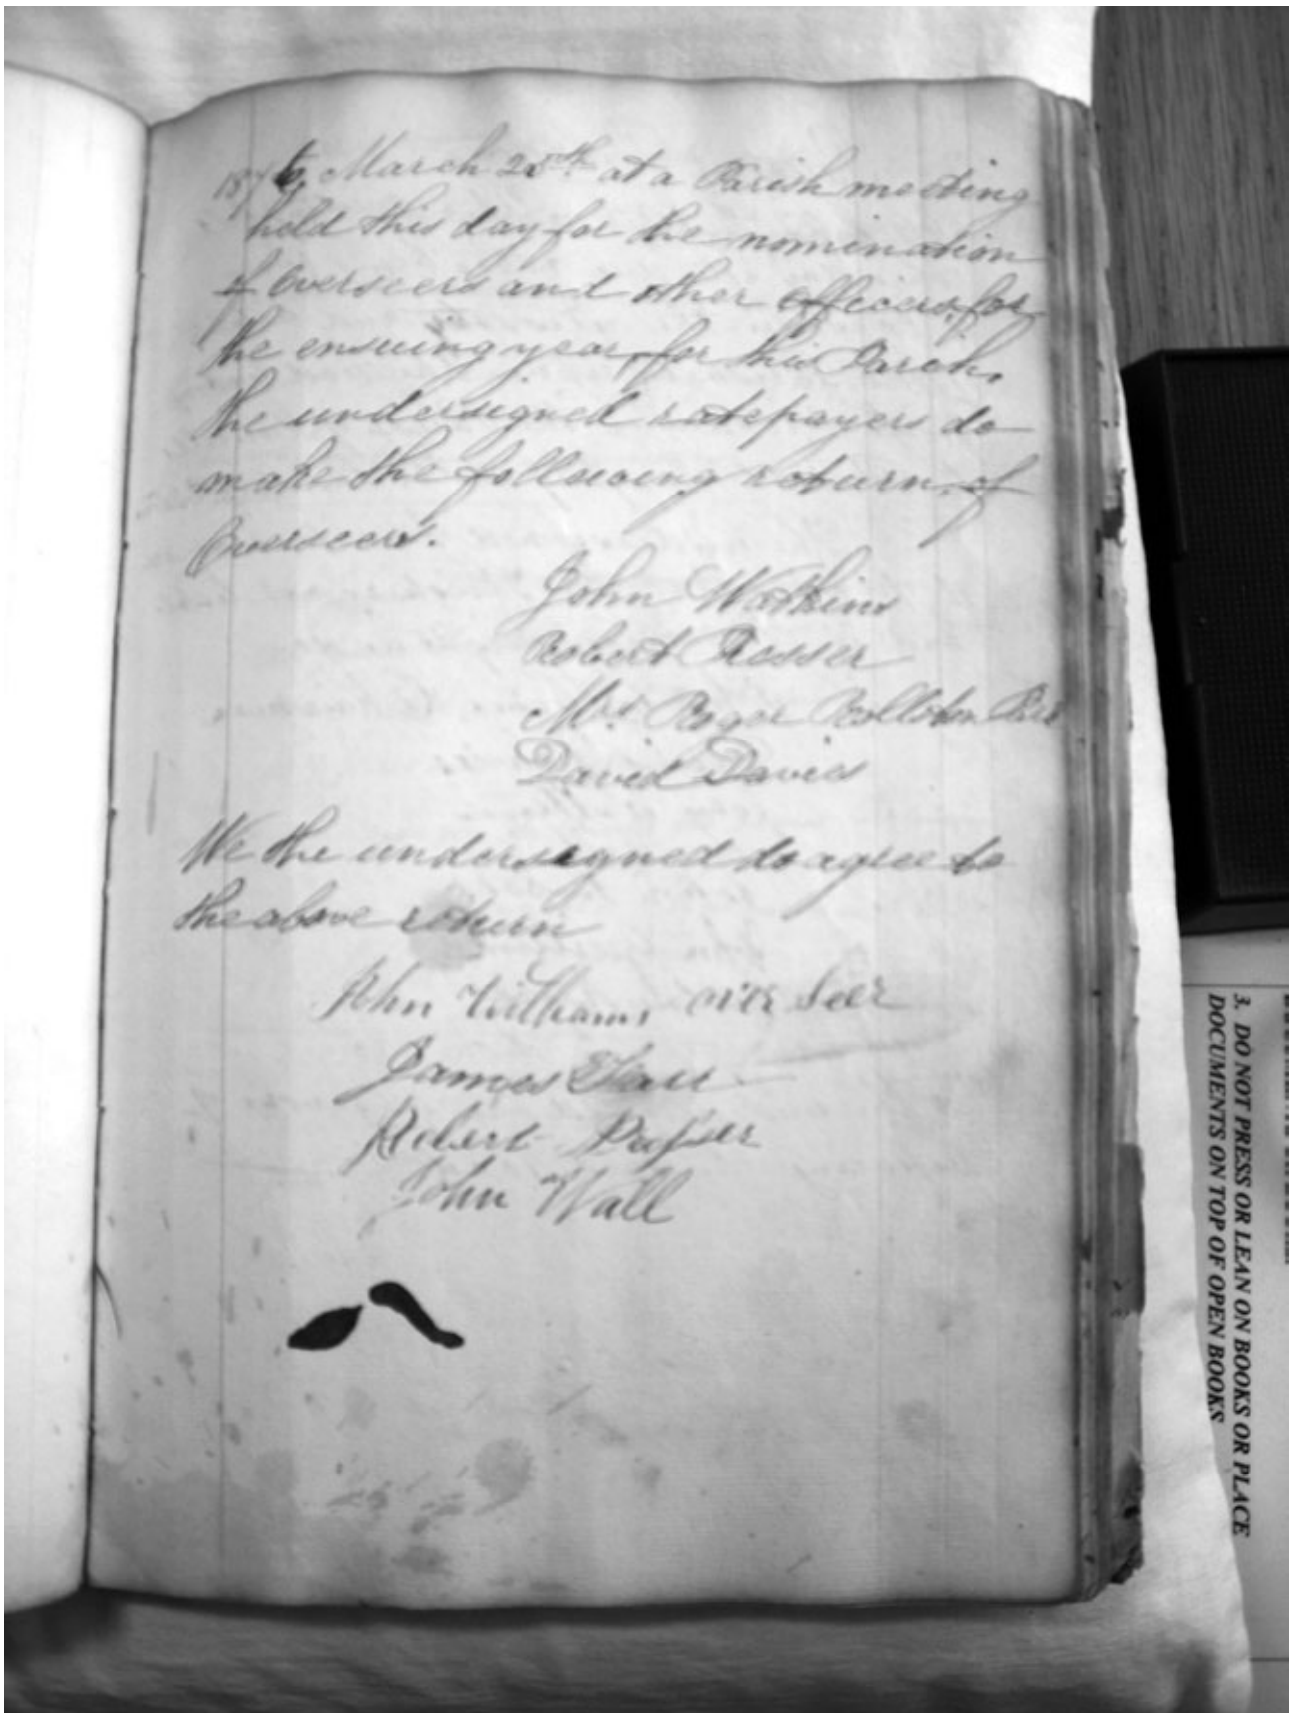 1876 March 25th at a Parish meeting
held this day for the nomination
of Overseers and other officers for
the ensuing year, for this Parish,
the undersigned ratepayers do
make the following return, of
Overseers.
John Watkins
Robert Prosser
Mrs. Roger
David Davies
We the undersigned do agree to
the above return
John Williams over Seer
James
Robert
John Wall
3. DO NOT PRESS OR LEAN ON BOOKS OR PLACE
DOCUMENTS ON TOP OF OPEN BOOKS